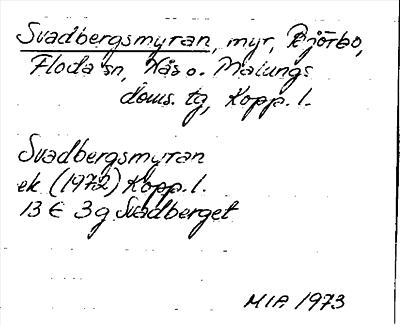 Svadbergsmyran, myr, Björbo,
Floda sn, Nås o. Malungs
doms. tg, Kopp. l.
Svadbergsmyran
ek (1972) Kopp. l.
13 E 3 g Svadberget
MIA 1973